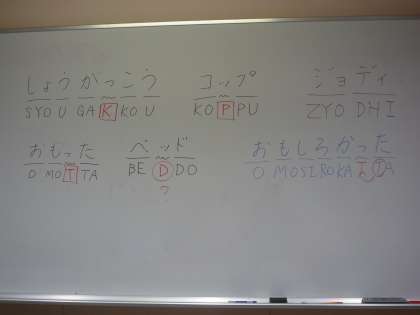 しょうがっこう コップ ジョディ
SYO U GA K KO U KO P PU ZYO DHI
おもった ベッド おもしろかった
O MO T TA BE D DO O MO SI RO KA T TA
?